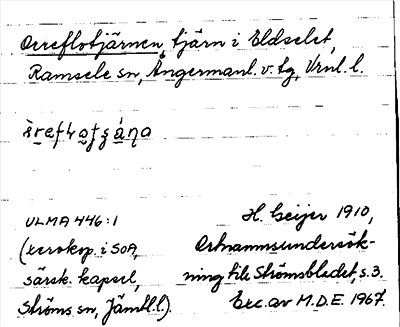 Orreflotjärnen, tjärn i Eldselet,
Ramsele sn, Ångermanl. v. tg, Vrnl. l.
ULMA 446:1
(xerokop. i SOA,
särsk. kapsel,
Ströms sn, Jämtl.l.).
H. Geijer 1910,
Ortnamnsundersök-
ning till Strömsbladet, s.3.
Exc. av M.D.E. 1967.